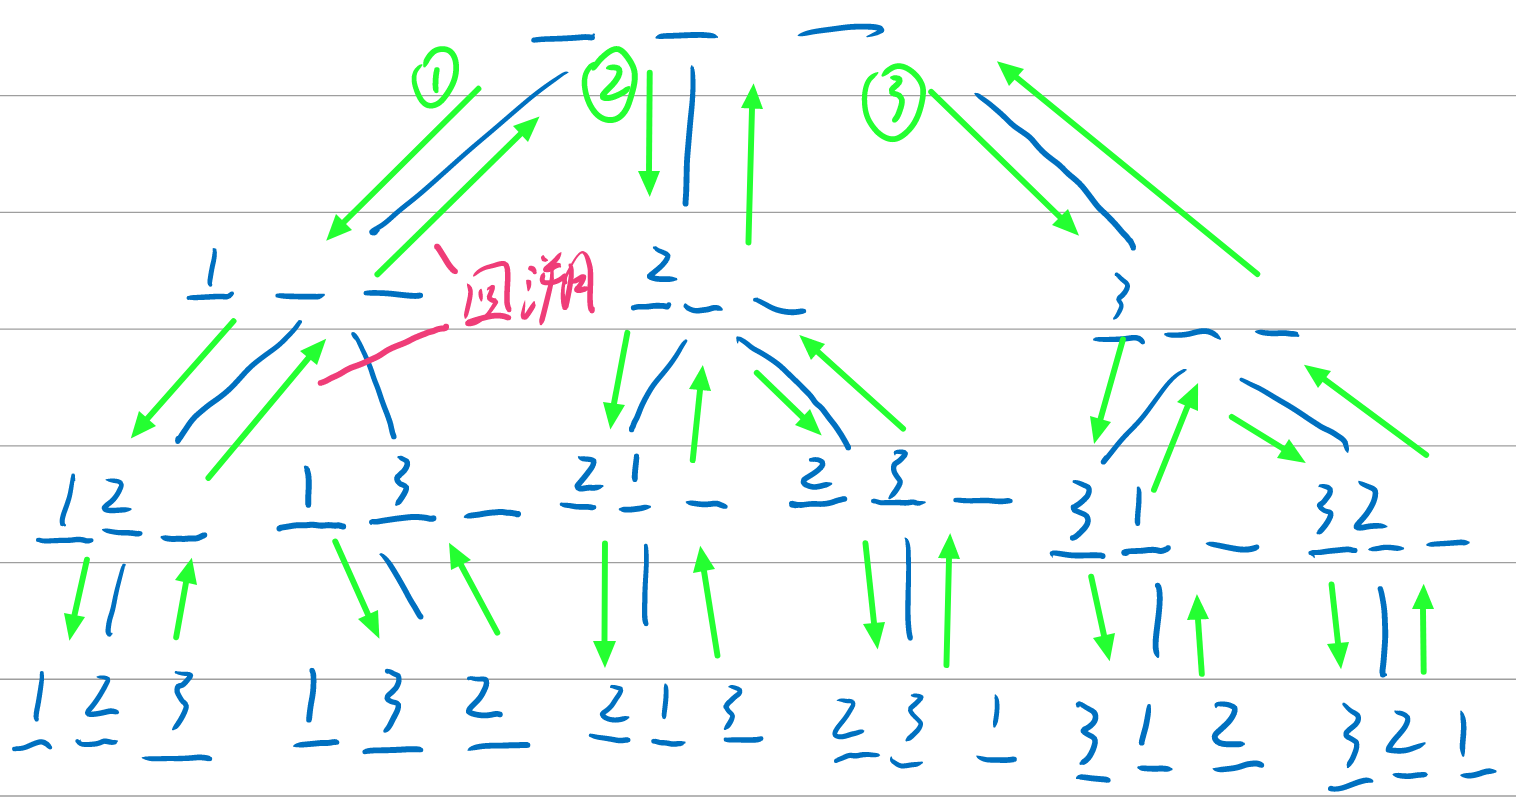 ① ② ③
1 2 3
回溯
1 2 1 3 2 1 2 3 3 1 3 2
1 2 3 1 3 2 2 1 3 2 3 1 3 1 2 3 2 1